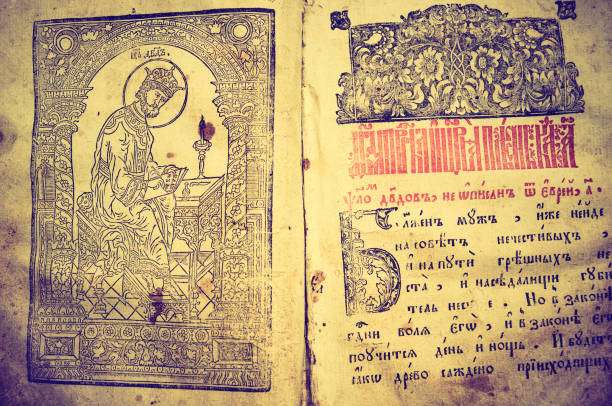 ѱ҃ло́м дв҃довъ, не ѡ҆писанъ ѿ є҆врей, а҃.
Блаженъ мужъ , и҆же не и҆де
на совѣтъ нечестивыхъ ,
и҆ на пути грѣшныхъ не
ста , и҆ на сѣдалищи губи
тель не сѣде . Но в законѣ
гд҃ни волѧ є҆гѡ̀ , и҆ в законѣ є҆гѡ̀
поучитсѧ день и҆ нощь . И҆ будетъ
ꙗ҆кѡ древо саждено при и҆сходищихъ